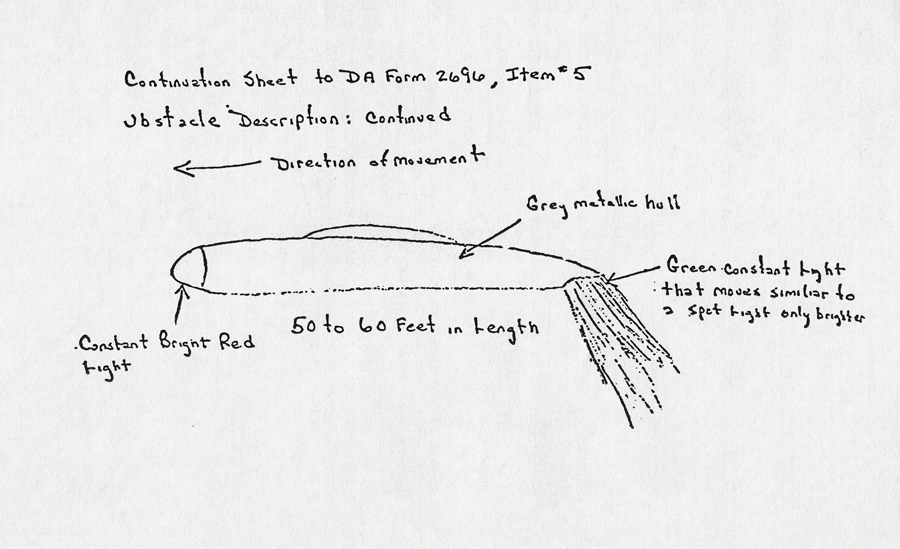 Continuation Sheet to DA Form 2696, Item #5
Obstacle Description: Continued
Direction of movement
Grey metallic hull
Green constant Light
that moves similiar to
a spot Light only brighter
50 to 60 Feet in Length
Constant Bright Red
Light